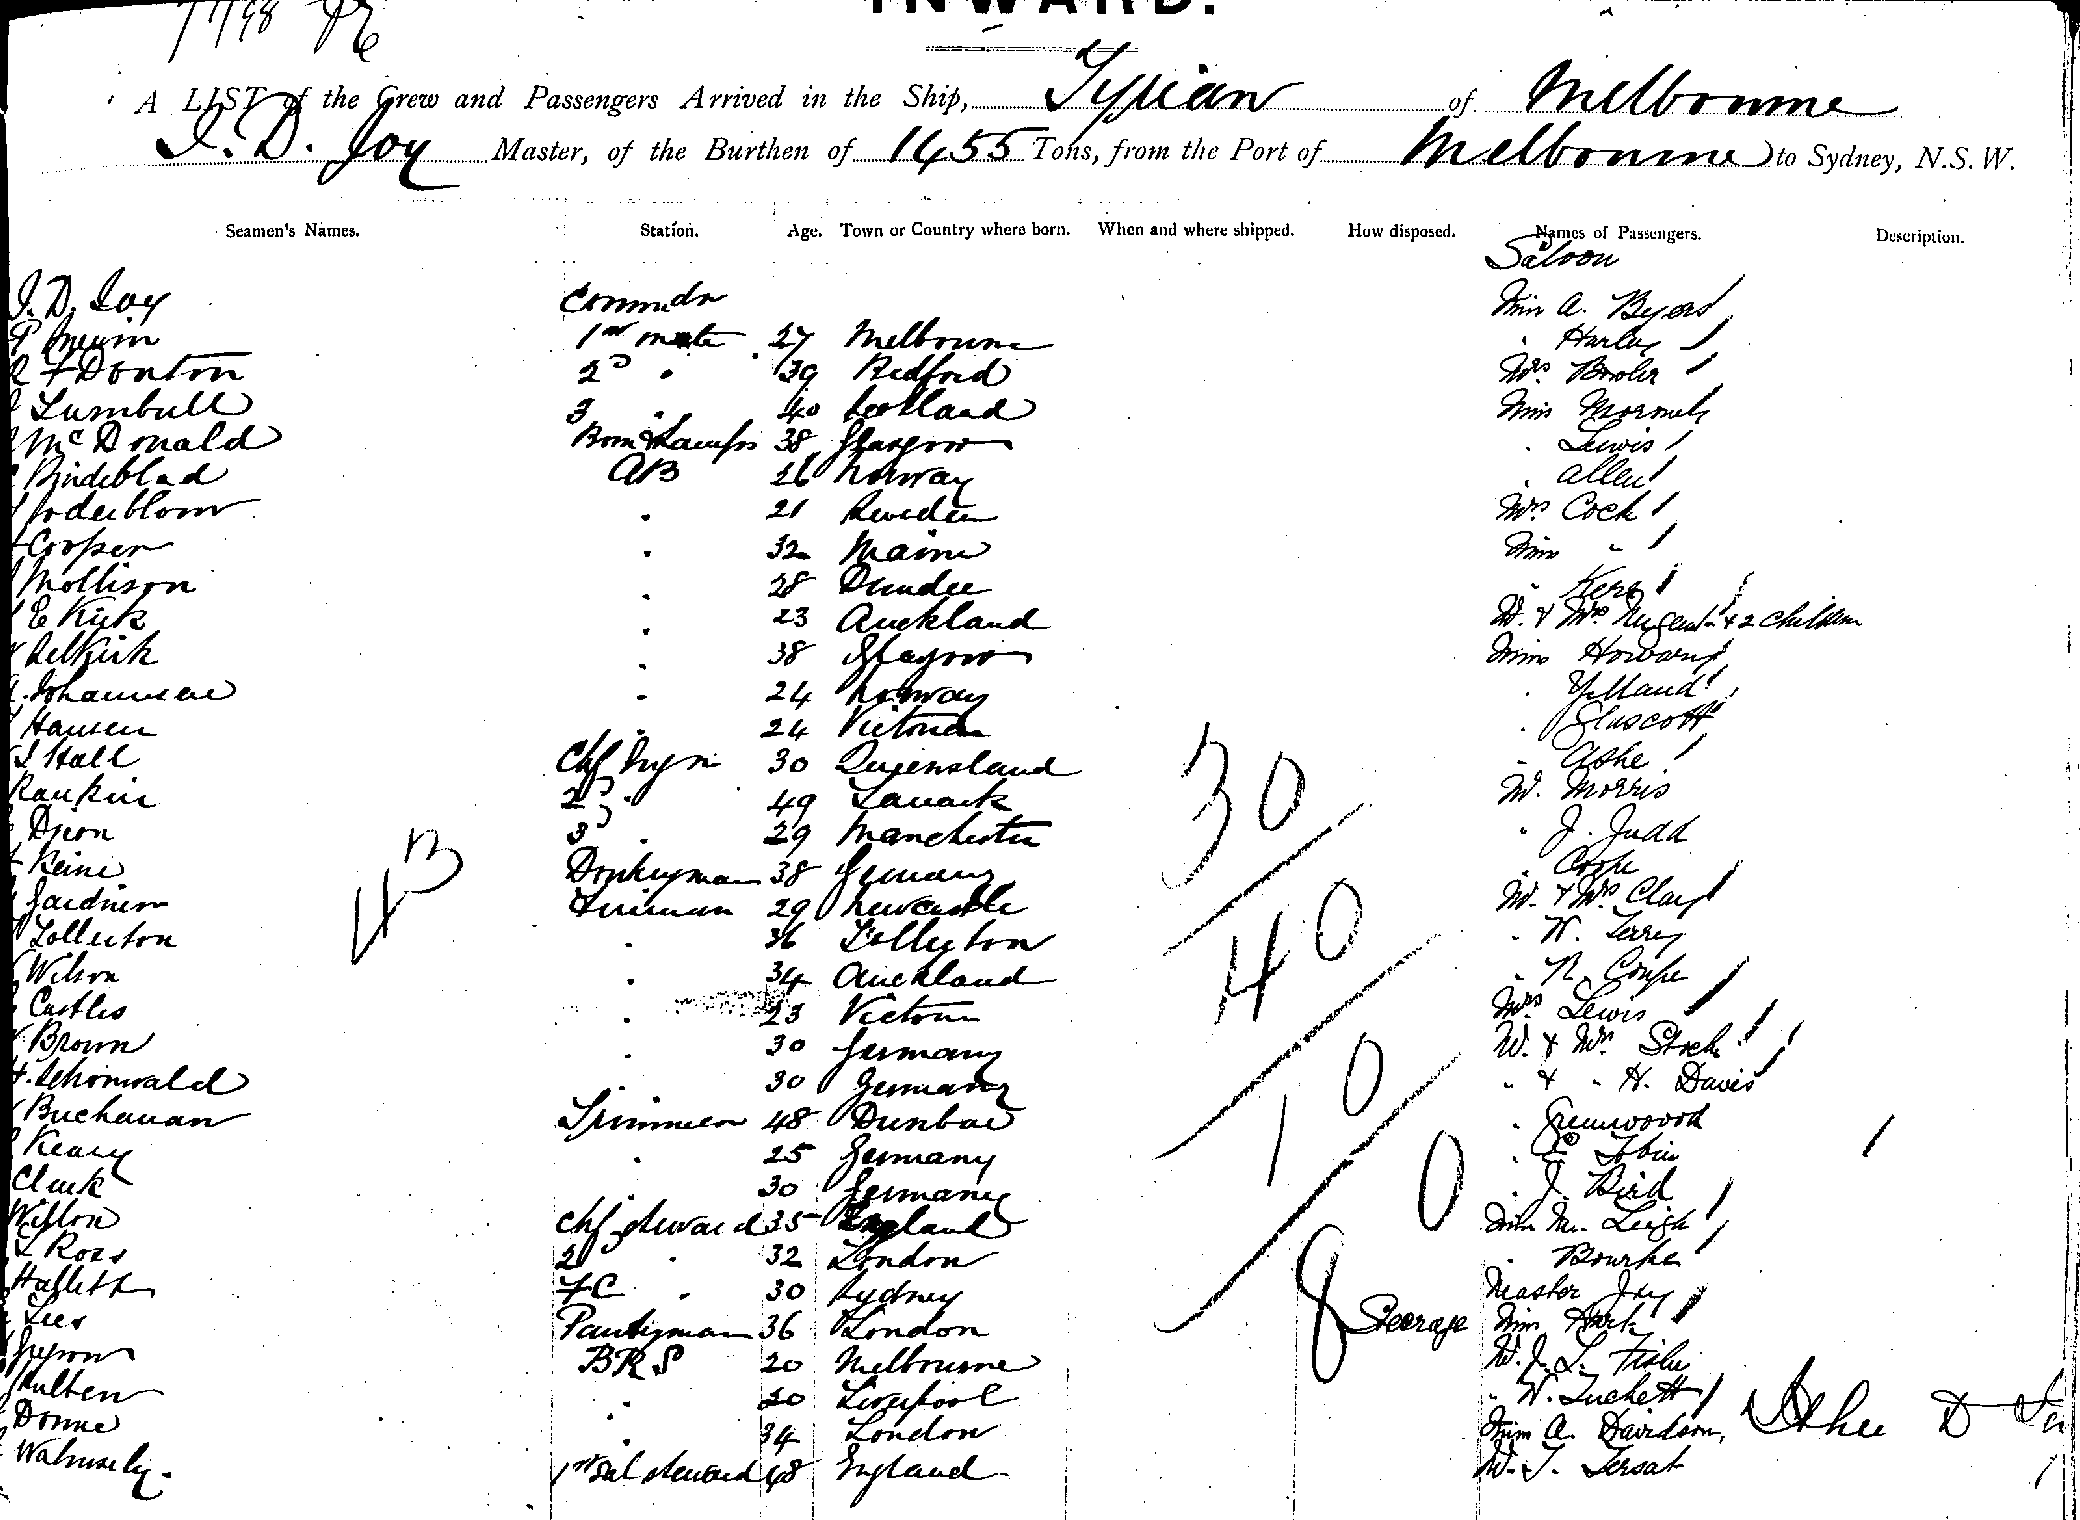 INWARD.
A LIST of the Crew and Passengers Arrived in the Ship, Tyrian of Melbourne
J. D. Joy Master, of the Burthen of 1455 Tons, from the Port of Melbourne to Sydney, N.S.W.
Seamen's Names. Station. Age. Town or Country where born. When and where shipped. How disposed. Names of Passengers. Description.
Saloon
J. D. Joy Commdr Miss A. Byers
1st mate 27 Melbourne " Harley
Donton 2d " 39 Bedford Mrs Bowler
Turnbull 3 " 40 Scotland Miss
McDonald Bosn & Lamps 38 Glasgow " Lewis
Bindeblad AB 26 Norway " Allen
Soderblom " 21 Sweden Mrs Cock
Cooper " 32 Maine Miss "
Mollison " 28 Dundee " Kerr
E Kirk " 23 Auckland M. & Mrs Nugent & 2 children
Selkirk " 38 Glasgow Miss Howard
Johannsen " 24 Norway " Yelland
Hansen " 24 Victoria " Gluscott
Hall Chf Engn 30 Queensland " Ashe
Rankin 2d " 49 Lanark M. Morris
Dixon 3d " 29 Manchester " J. Judd
Keine Donkeyman 38 Germany " Cope
Gardner Fireman 29 Newcastle M. & Mrs Clay
Tollerton " 36 Tollerton " W. Terry
Wilson " 34 Auckland " R. Coupe
Castles " 23 Victoria Mrs Lewis
Brown " 30 Germany M. & Mrs Stock
H. Schonwald " 30 Germany " & " H. Davis
Buchanan Trimmer 48 Dunbar " Greenwood
Keary " 25 Germany " Tobin
Clark " 30 Germany " J. Bird
Wilson Chf Steward 35 England Miss M. Leigh
Ross 2d " 32 London " Bourke
Hallett FC " 30 Sydney Master Joy
Lees Pantryman 36 London Steerage Miss Hark
BRS 20 Melbourne M. J. L. Fisher
" 20 Liverpool " W. Tuckett
Donne " 34 London Miss A. Davidson
Walmsely 1st Sal Steward 48 England M. T. Tersat
43
30
40
10
80